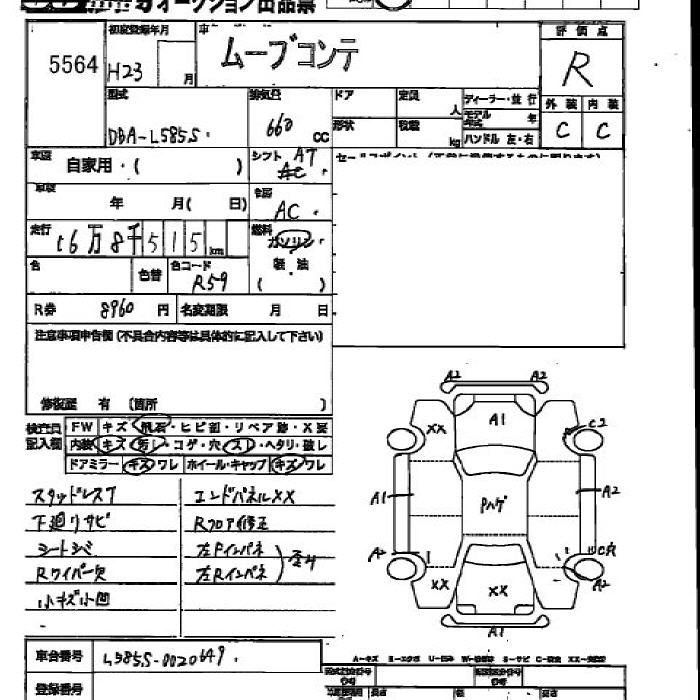 オークション出品票
5564
初度登録年月
H23 月
車
ムーブコンテ
評価点
R
型式
DBA-L585S
排気量
660 cc
ドア
定員 人
ディーラー・並行
モデル年式 年
外装 内装
C C
形状
積載 kg
ハンドル 左・右
車歴
自家用・( )
シフト AT
AC
車検
年 月( 日)
冷房
AC
走行
16万8千515 km
燃料
ガソリン
軽油
( )
色
色替
色コード
R59
R券 8960 円
名変期限 月 日
注意事項申告欄(不具合内容等は具体的に記入して下さい)
修復歴 有 (箇所 )
検査員記入欄
FW キズ・飛石・ヒビ割・リペア跡・X要
内装 キズ・汚レ・コゲ・穴・スレ・ヘタリ・破レ
ドアミラー キズ・ワレ ホイール・キャップ キズ・ワレ
スタッドレスT
下廻リサビ
シートシミ
Rワイパー欠
小キズ小凹
エンドパネルXX
Rフロア修正
左Fインパネ
左Rインパネ
歪ミ
A2 A2
XX A1 C2
A1 Pハゲ A2
A2 C穴
XX XX A2
A1
車台番号
L585S-0020649
A-キズ
登録番号